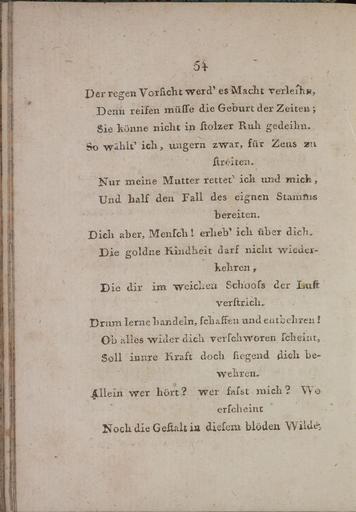 54
Der regen Vorſicht werd' es Macht verleihn,
Denn reifen müſſe die Geburt der Zeiten;
Sie könne nicht in ſtolzer Ruh gedeihn.
So wählt' ich, ungern zwar, für Zeus zu
ſtreiten.
Nur meine Mutter rettet' ich und mich,
Und half den Fall des eignen Stamms
bereiten.
Dich aber, Menſch! erheb' ich über dich.
Die goldne Kindheit darf nicht wieder-
kehren,
Die dir im weichen Schooſs der Luſt
verſtrich.
Drum lerne handeln, ſchaffen und entbehren!
Ob alles wider dich verſchworen ſcheint,
Soll innre Kraft doch ſiegend dich be-
wehren.
Allein wer hört? wer faſst mich? Wo
erſcheint
Noch die Geſtalt in dieſem blöden Wilde,